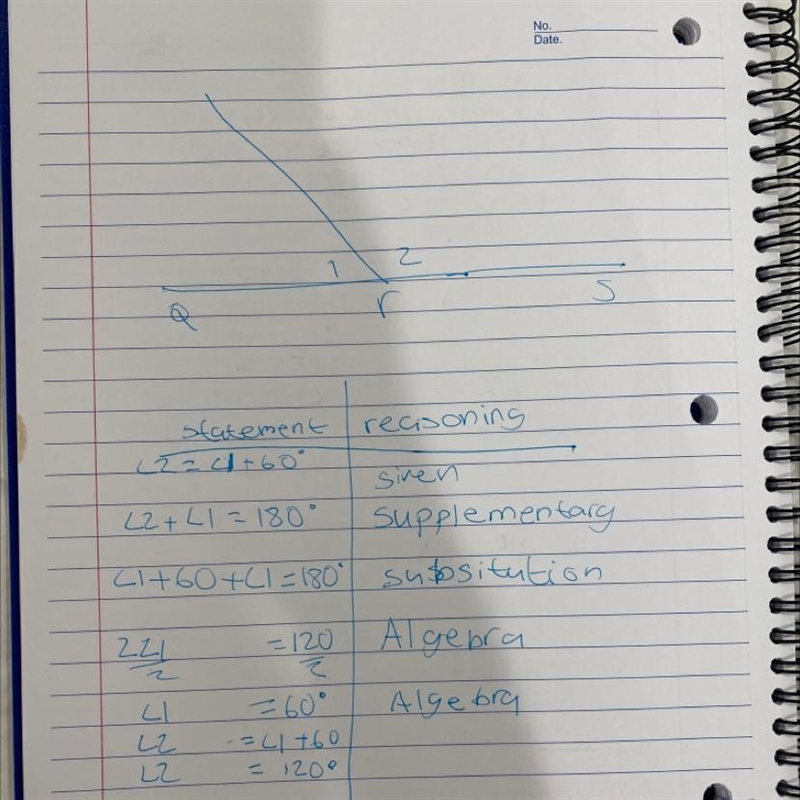 No.
Date.
1 2
Q r S
statement reasoning
∠2 = ∠1 + 60° siven
∠2 + ∠1 = 180° supplementary
∠1 + 60 + ∠1 = 180° subsitution
2∠1/2 = 120/2 Algebra
∠1 = 60° Algebra
∠2 = ∠1 + 60
∠2 = 120°